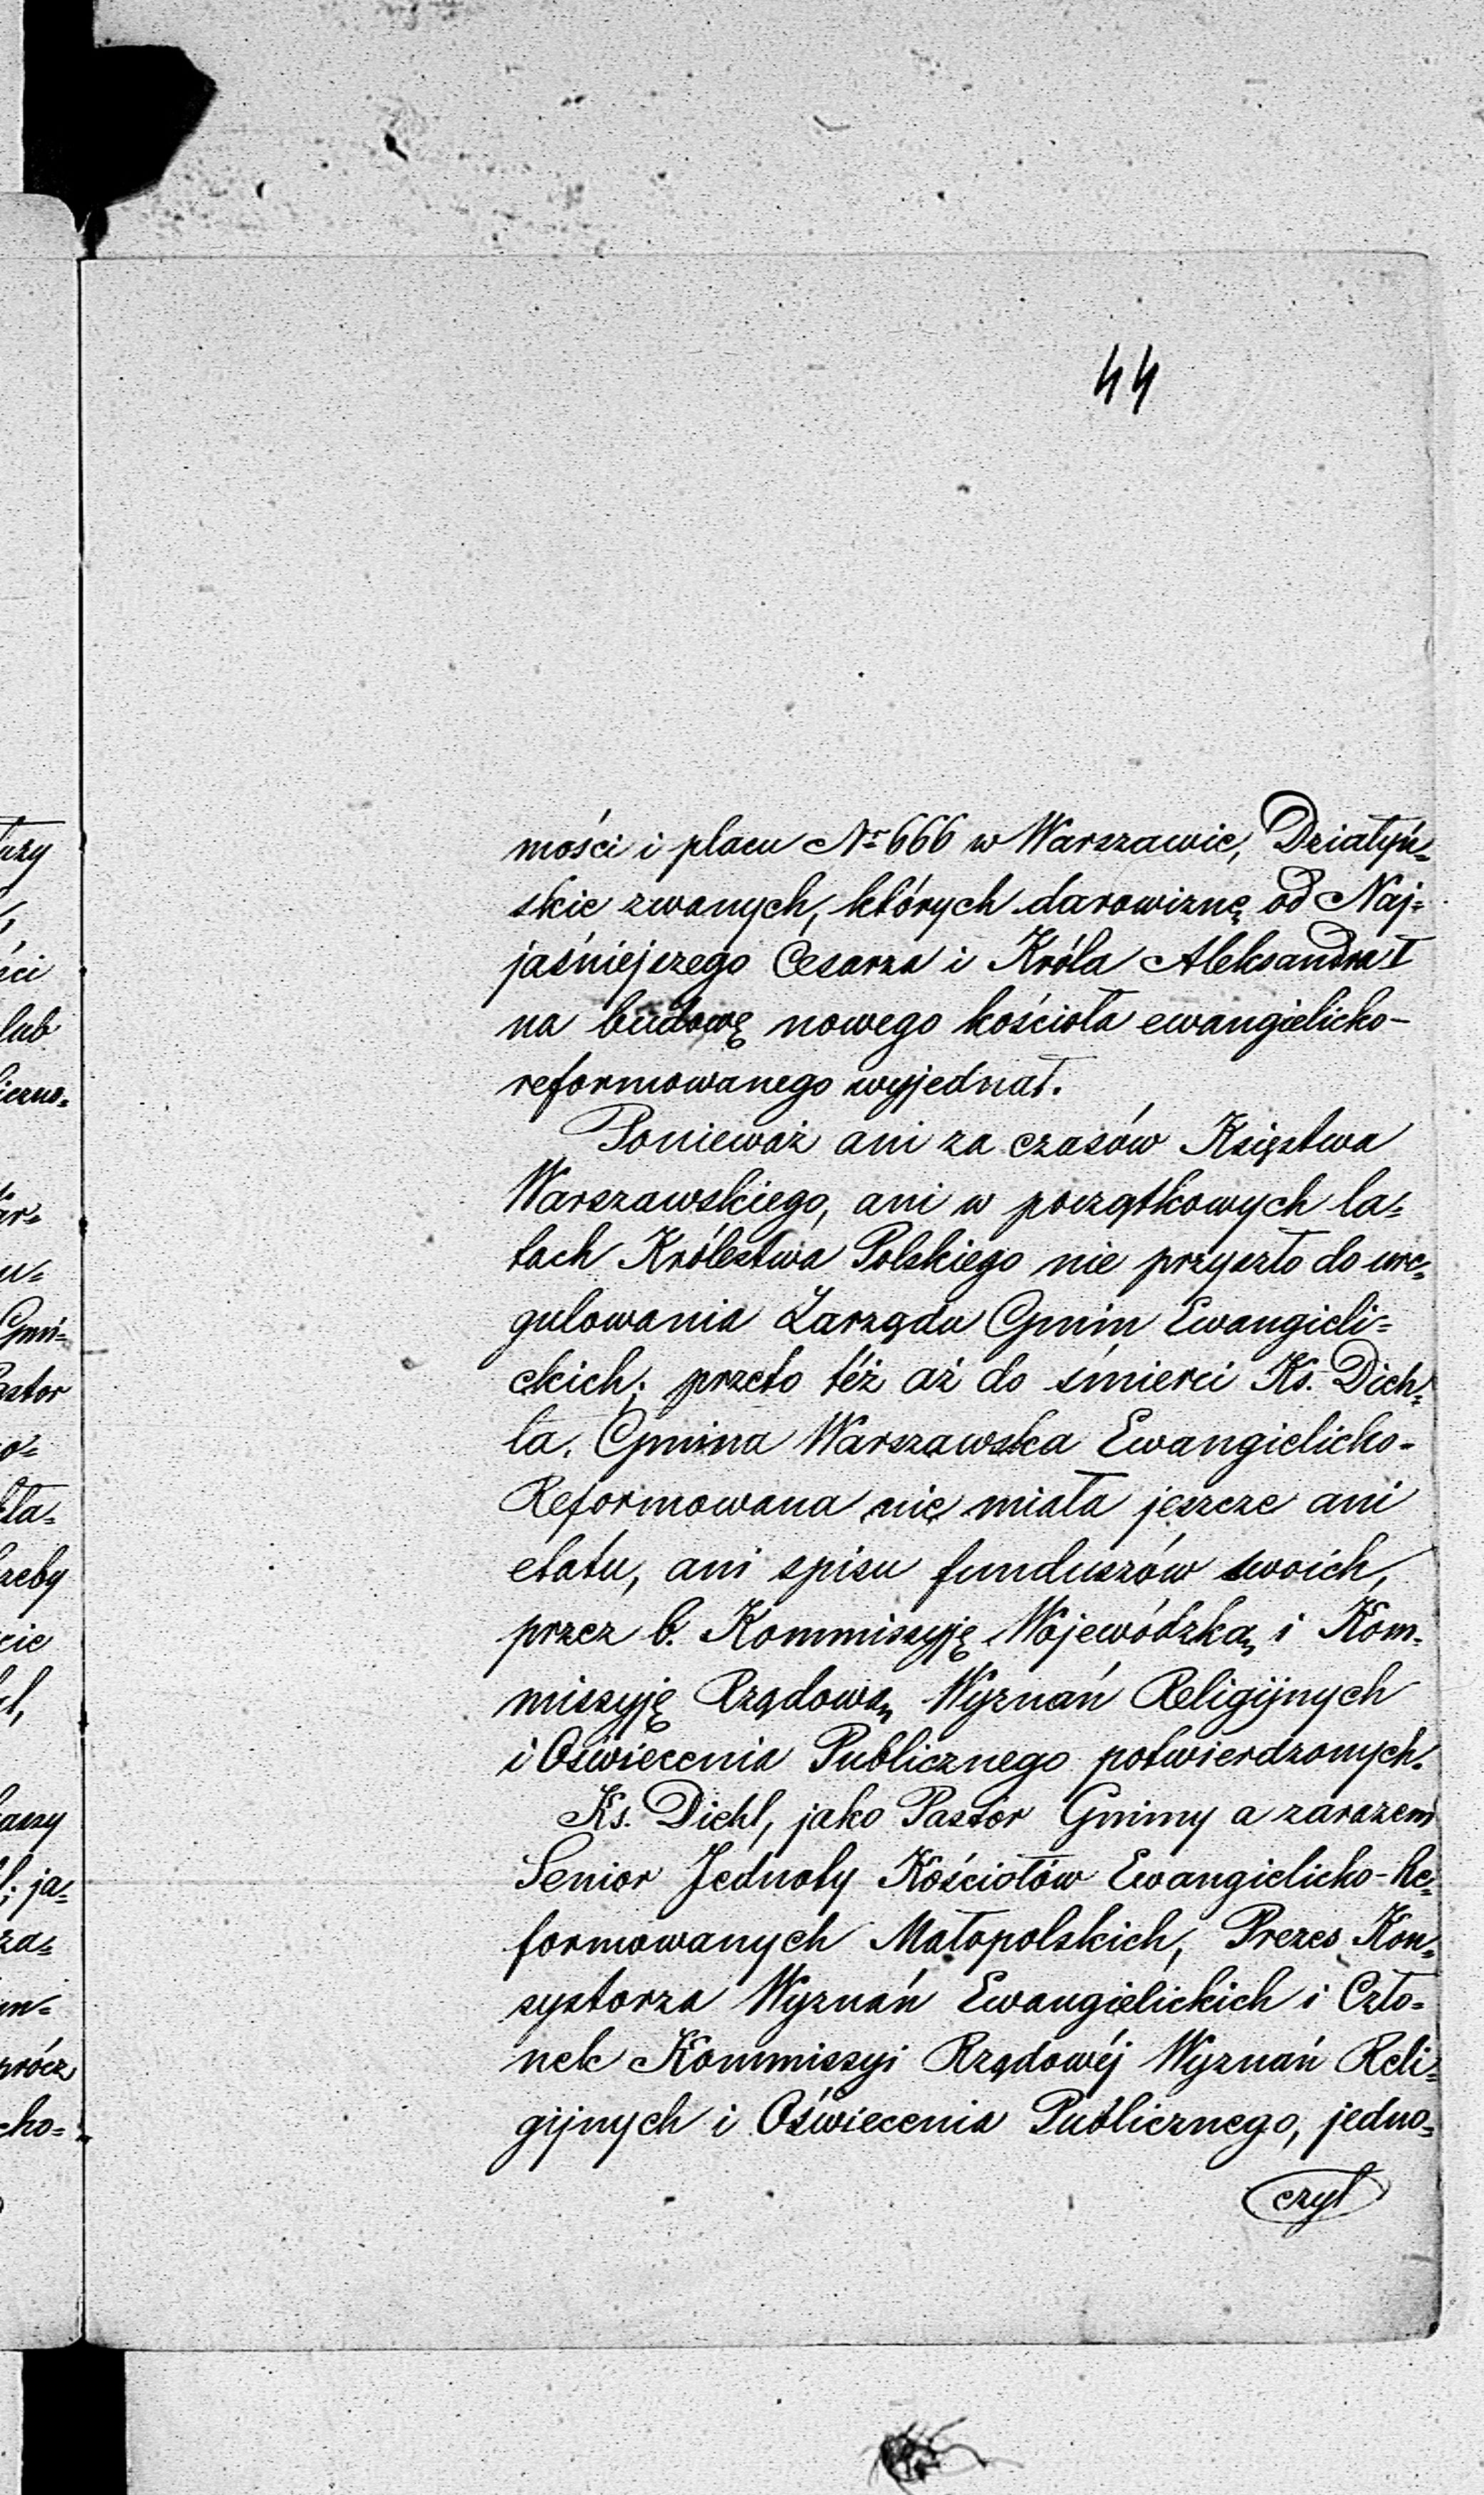 44
mości i placu Nr 666 w Warszawie, Działyń=
skie zwanych, których darowiznę od Naj=
jaśniejszego Cesarza i Króla Aleksandra I
na budowę nowego kościoła ewangielicko-
reformowanego wyjednał.
Ponieważ ani za czasów Księstwa
Warszawskiego, ani w początkowych la=
tach Królestwa Polskiego nie przyszło do ure=
gulowania Zarządu Gmin Ewangieli=
ckich; przeto téż aż do śmierci Ks. Dieh=
la. Gmina Warszawska Ewangielicko-
Reformowana nie miała jeszcze ani
etatu, ani spisu funduszów swoich,
przez b. Kommissyję Wojewódzką i Kom=
missyję Rządową Wyznań Religijnych
i Oświecenia Publicznego potwierdzonych.
Ks. Diehl, jako Pastor Gminy a zarazem
Senior Jednoty Kościołów Ewangielicko-Re=
formowanych Małopolskich, Prezes Kon=
systorza Wyznań Ewangielickich i Czło=
nek Kommissyi Rządowéj Wyznań Reli=
gijnych i Oświecenia Publicznego, jedno=
czył
uzy
ści
lub
iczno=
ar=
u=
Gmi=
astor
o=
ła=
zeby
cie
aszy
; ja=
za=
m=
prócz
cko=